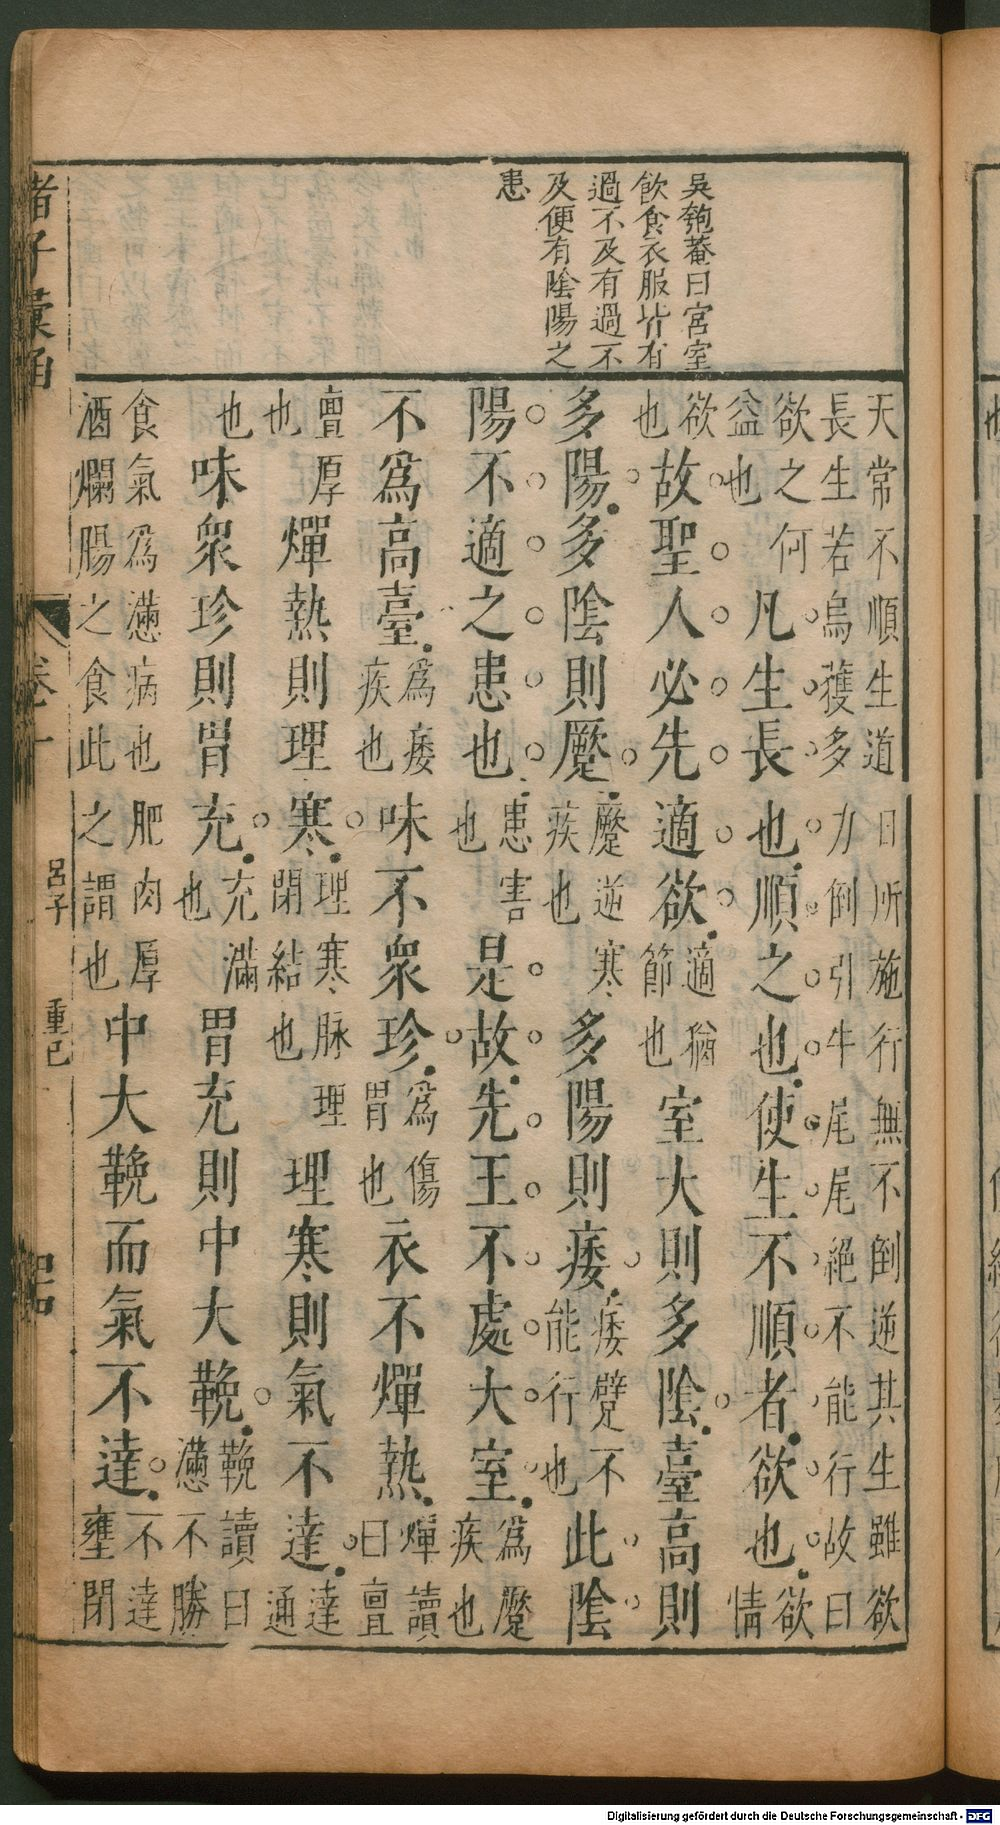 吳匏菴曰宮室
飲食衣服皆有
過不及有過不
及便有陰陽之
患
天常不順生道日所施行無不倒逆其生雖欲
長生若烏獲多力倒引牛尾尾絕不能行故曰
欲之何
益也
凡生長也順之也使生不順者欲也
欲情
欲也
故聖人必先適欲
適猶
節也
室大則多陰臺高則
多陽多陰則蹷
蹷逆寒
疾也
多陽則痿
痿躄不
能行也
此陰
陽不適之患也
患害
也
是故先王不處大室
為蹷
疾也
不為高臺
為痿
疾也
味不衆珍
為傷
胃也
衣不燀熱
燀讀
曰亶
亶厚
也
燀熱則理寒
理寒脉理
閉結也
理寒則氣不達
達
通
也
味衆珍則胃充
充滿
也
胃充則中大鞔
鞔讀曰
懣不勝
食氣為懣病也肥肉厚
酒爛腸之食此之謂也
中大鞔而氣不達
不達
壅閉
諸子彙函
卷十
呂子
重己